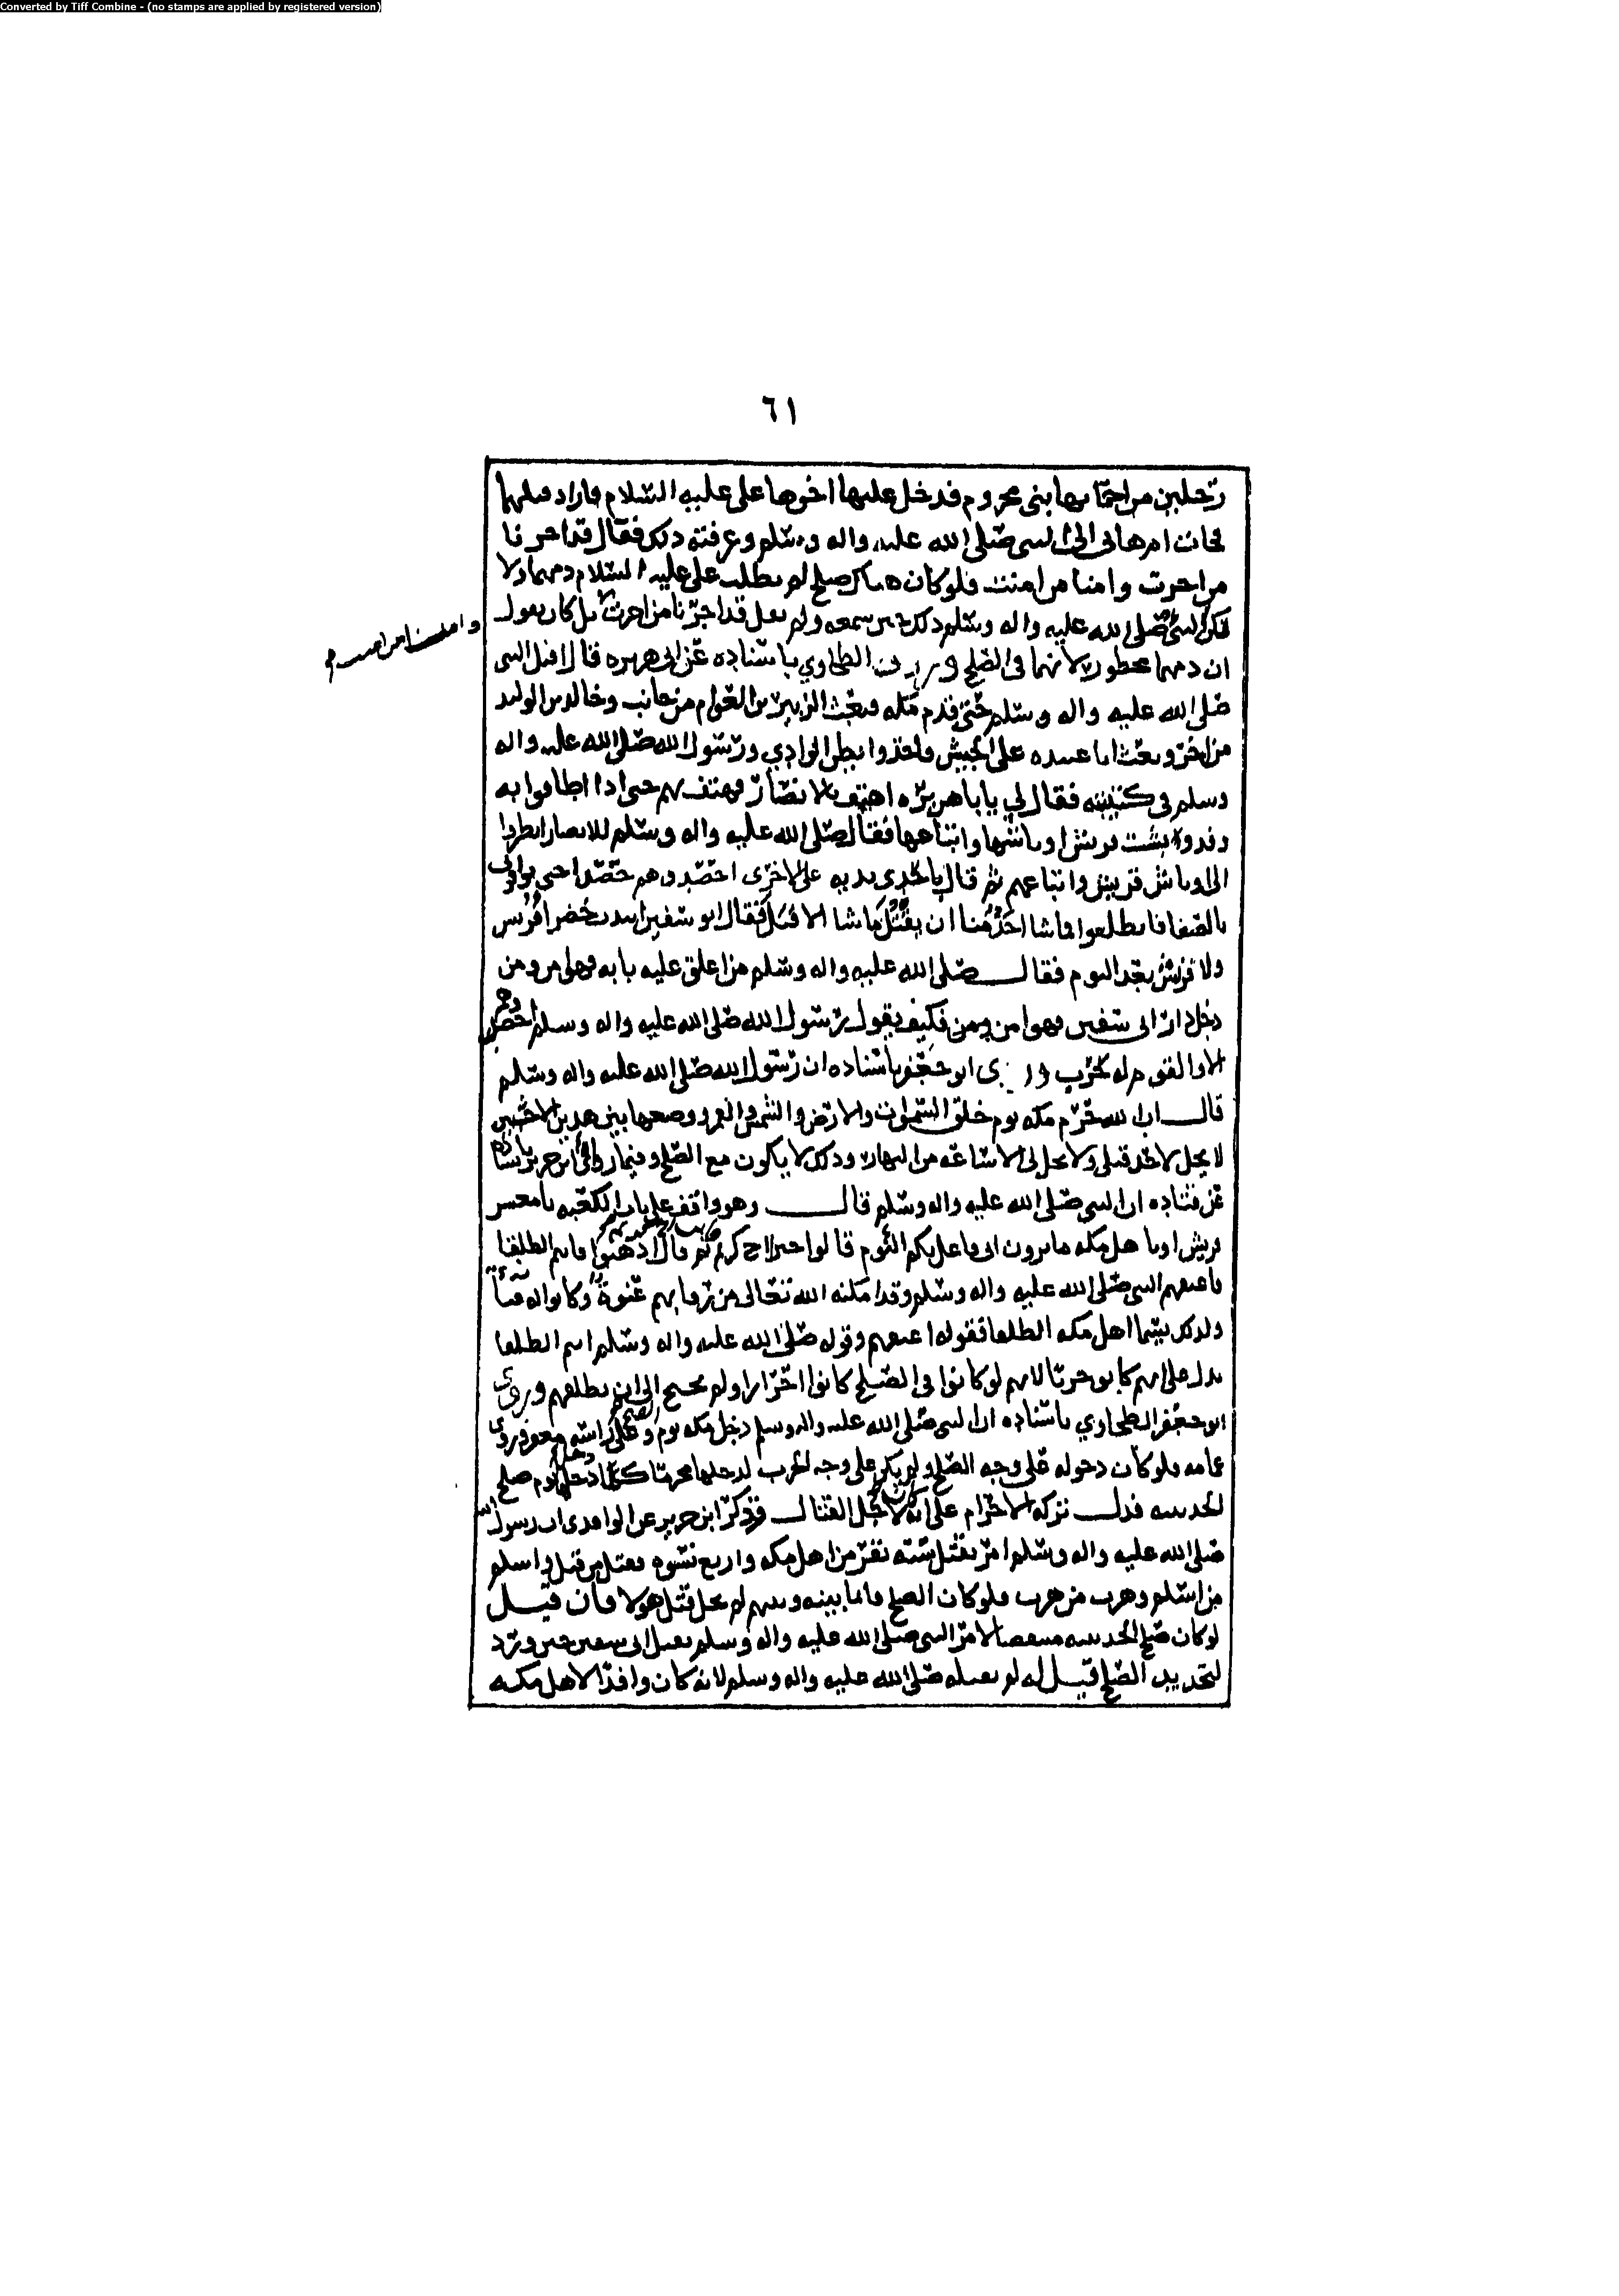 Converted by Tiff Combine - (no stamps are applied by registered version)
٦١
رجلين من احمايها بنى مخزوم فدخل عليها اخوها على عليه السلام فاراد قتلهما
فجات ام هانى الى النبى صلى الله عليه واله وسلم وعرفته ذلك فقال قد اجرنا
من اجرت وامنا من امنت فلو كان هناك صلح لم يطلب على عليه السلام دمهما ولا
النبى صلى الله عليه واله وسلم ذلك حين سمعه ولم يقل قد اجرنا من اجرت بل كان يقول
وامنا من امنت
ان دمهما محظور لانهما فى الصلح الطحاوي باسناده عن ابى هريره قال اقبل النبى
صلى الله عليه واله وسلم حتى قدم مكه فبعث الزبير بن العوام من جانب وخالد بن الوليد
من اخر وبعث ابا عبيده على الجيش فاخذوا بطن الوادي ورسول الله صلى الله عليه واله
وسلم فى كتيبته فقال لي يابا هريره اهتف بالانصار فهتف بهم حتى اذا اطافوا به
وقد قريش اوباشها واتباعها فقال صلى الله عليه واله وسلم للانصار انظروا
الى اوباش قريش واتباعهم ثم قال باحدى يديه على الاخرى احصدوهم حصدا حتى توافونى
بالصفا فانطلقوا فما شا احد منا ان يقتل ما شا الا قتل فقال ابو سفين ابيدت خضرا قريش
ولا قريش بعد اليوم فقال صلى الله عليه واله وسلم من اغلق عليه بابه فهو امن ومن
دخل دار ابى سفين فهو امن فكيف يقول رسول الله صلى الله عليه واله وسلم احصدوهم
الا والقوم له حرب وروى ابو جعفر باسناده ان رسول الله صلى الله عليه واله وسلم
قال ان الله حرم مكه يوم خلق السموات والارض والشمس والقمر ووضعها بين هذين الاخشبين
لا يحل لاحد قبلى ولا يحل لى الا ساعة من النهار وذلك لا يكون مع الصلح وفيما رواه ابن جرير باسناده
عن قتاده ان النبى صلى الله عليه واله وسلم قال وهو واقف على باب الكعبه يا معشر
قريش اويا اهل مكه ما ترون انى فاعل بكم اليوم قالوا خيرا اخ كريم ثم قال اذهبوا فانتم الطلقا
فاعتقهم النبى صلى الله عليه واله وسلم وقد امكنه الله تعالى من رقابهم عنوة وكانوا له فيأ
ولذلك يسما اهل مكه الطلقا فقوله اعتقهم وقوله صلى الله عليه واله وسلم انتم الطلقا
يدل على انهم كانوا حربا لانهم لو كانوا فى الصلح كانوا احرارا ولم يحتج الى ان يطلقهم وروى
ابو جعفر الطحاوي باسناده ان النبى صلى الله عليه واله وسلم دخل مكه يوم الفتح وعلى راسه مغفر وروى
عمامه فلو كان دخوله على وجه الصلح ولم يكن على وجه الحرب لدخلها محرما كما دخلها يوم صلح
الحديبيه فدل تركه الاحرام على انه كان لاجل القتال وذكر ابن جرير عن الواقدى ان رسول الله
صلى الله عليه واله وسلم امر بقتل سته نفر من اهل مكه واربع نسوه فقتل من قتل واسلم
من اسلم وهرب من هرب فلو كان الصلح قائما بينه وبينهم لم يحل قتل هولا فان قيل
لو كان صلح الحديبيه منتقضا لامر النبى صلى الله عليه واله وسلم بقتل ابى سفين حين ورد
لتجديد الصلح قيل له لم يقتله صلى الله عليه واله وسلم لانه كان وافدا لاهل مكه